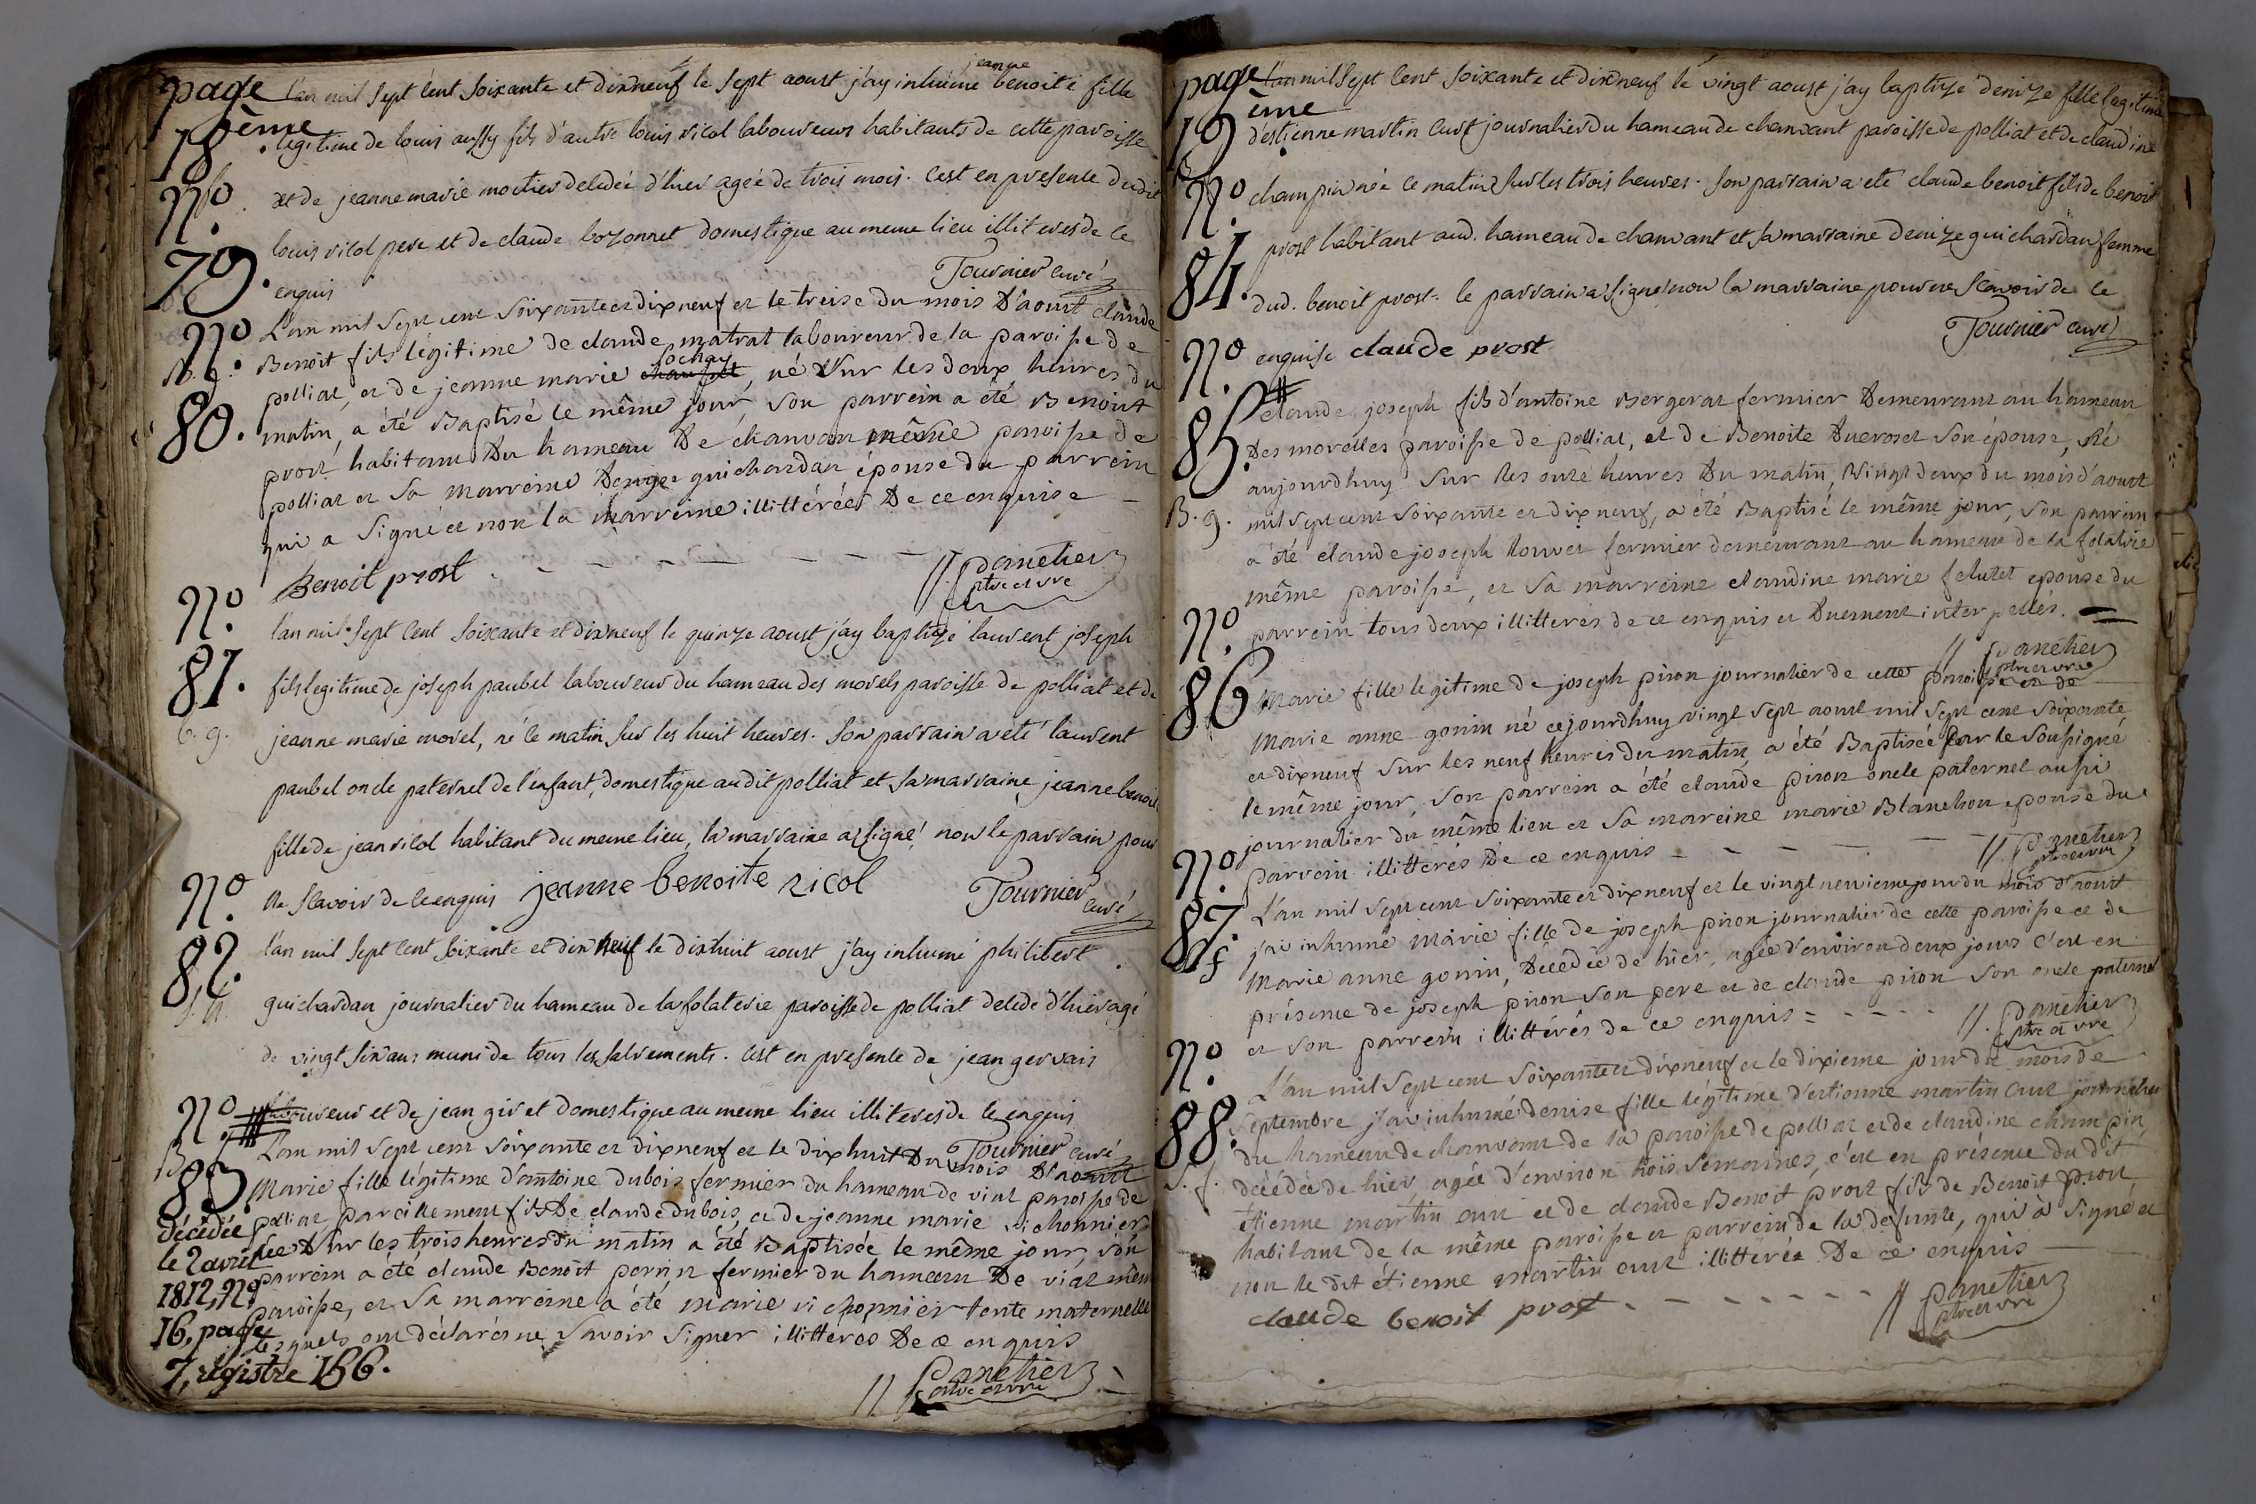 page 18ème
l'an mil sept cent soixante et dixneuf le sept aoust j'ay inhumé jeanne benoite fille
legitime de louis aussy fils d'autre louis ricol laboureurs habitants de cette paroisse
et de jeanne marie moctier decedée d'hier agée de trois mois. c'est en presence dudit
louis ricol pere et de claude bozonnet domestique au meme lieu illiteres de ce
enquis Tournier curé
N.º 79.
N.º 80. B. g.
L'an mil sept cent soixante et dix neuf et le treise du mois d'aoust claude
Benoit fils légitime de claude matrat laboureur de la paroisse de
polliat, et de jeanne marie sochay, né sur les deux heures du
matin, a été Baptisé le même jour, son parrein a été Benoit
prost habitant du hameau de chanvan même paroisse de
polliat et sa marreine denize guichardan épouse du parrein
qui a signé et non la marreine illittérée de ce enquise
Benoit prost // panetier
ptre et vre
N.º 81. b. g.
l'an mil sept cent soixante et dixneuf le quinze aoust j'ay baptizé laurent joseph
fils legitime de joseph paubel laboureur du hameau des morels paroisse de polliat et de
jeanne marie morel, né ce matin sur les huit heures. son parrain a eté laurent
paubel oncle paternel de l'enfant, domestique audit polliat et sa marraine jeanne benoite
fille de jean ricol habitant du meme lieu, la marraine a signé, non le parrain pour
ne scavoir de ce enquis jeanne benoite ricol Tournier curé
N.º 82.
l'an mil sept cent soixante et dix neuf le dixhuit aoust j'ay inhumé philibert
guichardan journalier du hameau de la folaterie paroisse de polliat decedé d'hier agé
de vingt six ans muni de tous les sacrements. c'est en presence de jean gervais
laboureur et de jean giret domestique au meme lieu illiteres de ce enquis
Tournier curé
N.º 83.
L'an mil sept cent soixante et dix neuf et le dix huit du mois d'aoust
Marie fille légitime d'antoine dubois fermier du hameau de viat paroisse de
polliat, pareillement fils de claude dubois, et de jeanne marie vichonnier,
née sur les trois heures du matin a été Baptisée le même jour, son
parrein a été claude Benoit perrin fermier du hameau de viat même
paroisse, et sa marreine a été marie vichonnier tente maternelle
lesquels ont déclarés ne savoir signer illittéres de ce enquis
// panetier
ptre et vre
décédée
le 2 avril
1812, Nº
16, page
7, registre 166.
page 19ème
l'an mil sept cent soixante et dixneuf le vingt aoust j'ay baptizé denize fille legitime
d'estienne martin curt journalier du hameau de chanvant paroisse de polliat et de claudine
champin née ce matin sur les trois heures. son parrain a eté claude benoit fils de benoit
prost habitant aud. hameau de chanvant et sa marraine denize guichardan femme
dud. benoit prost. le parrain a signé non la marraine pour ne scavoir de ce
enquise claude prost Tournier curé
N.º 84.
N.º 85. B. g.
claude joseph fils d'antoine Bergerat fermier demeurant au hameau
des morelles paroisse de polliat, et de Benoite Ducroset son épouse, Né
aujourdhuy sur les onze heures du matin, vingt deux du mois d'aoust
mil sept cent soixante et dix neuf, a été Baptisé le même jour, son parrein
a été claude joseph louvet fermier demeurant au hameau de la folatrie
même paroisse, et sa marreine claudine marie felutet epouse du
parrein tous deux illitterés de ce enquis et duement interpellés.
// panetier
ptre et vre
N.º 86
Marie fille legitime de joseph piron journalier de cette paroisse et de
Marie anne gonin né cejourdhuy vingt sept aout mil sept cent soixante
et dixneuf sur les neuf heures du matin, a été Baptisée par le Sousigné
le même jour, son parrein a été claude piron oncle paternel aussi
journalier du même lieu et sa mareine marie Blanchon épouse du
parrein illittérés de ce enquis // panetier
ptre et vre
N.º 87.
L'an mil sept cent soixante et dix neuf et le vingt neuvieme jour du mois d'aoust
j'ai inhumé Marie fille de joseph piron journalier de cette paroisse et de
Marie anne gonin, décédée de hier, agée d'environ deux jours c'est en
présence de joseph piron son pere et de claude piron son oncle paternel
et son parrein illittérés de ce enquis // panetier
ptre et vre
N.º 88. S. f.
L'an mil sept cent soixante et dixneuf et le dixieme jour du mois de
Septembre j'ai inhumé denise fille légitime d'estienne martin curt journalier
du hameau de chanvant de la paroisse de polliat et de claudine champin,
décédée de hier, agée d'environ trois semaines, c'est en présence du dit
étienne martin curt et de claude Benoit prost fils de Benoit prost,
habitant de la même paroisse et parrein de la defunte, qui a signé et
non le dit étienne martin curt illittérée de ce enquis
claude benoit prost // panetier
ptre et vre